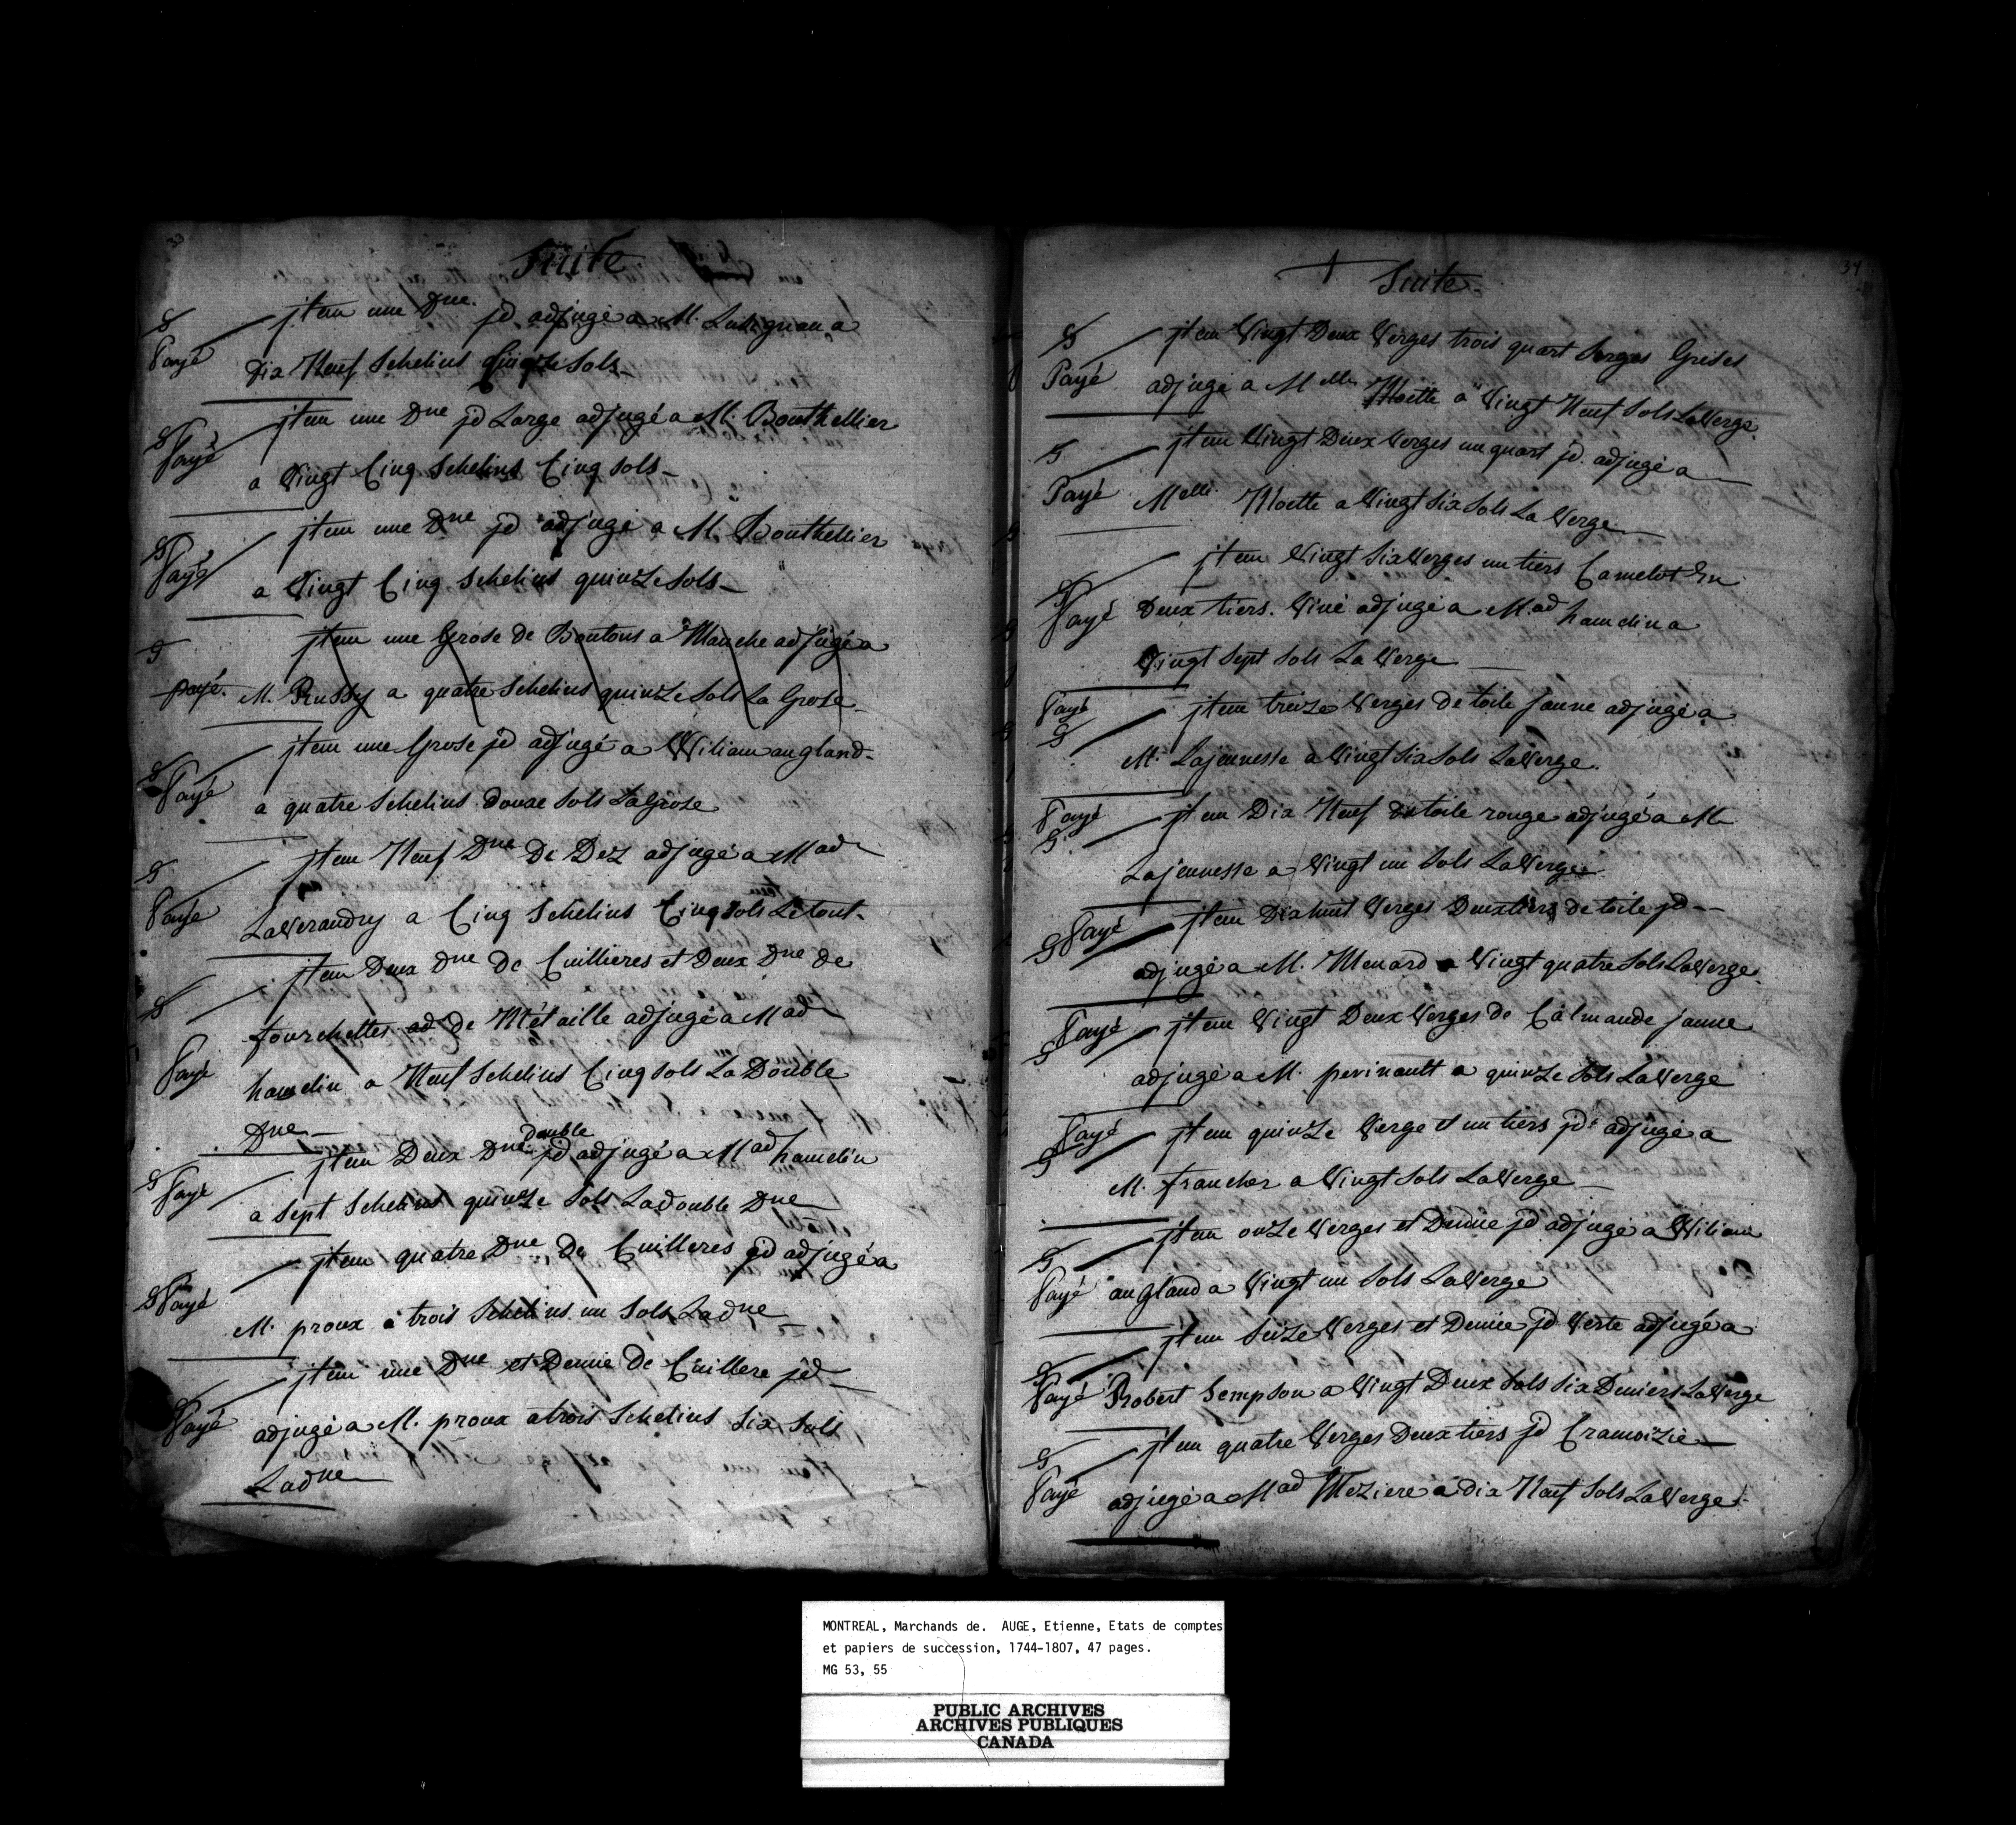 33
Suite
S
Payé
jtem une Dne. jd adjugé a M. Lusignan a
dix Neuf Schelins quinze Sols
S
Payé
jtem une Dne jd Large adjugé a M. Bouthellier
a Vingt Cinq Schelins Cinq Sols
S
Payé
jtem une Dne jd adjugé a M. Bouthellier
a Vingt Cinq Schelins quinze Sols
S
payé.
jtem une Grose de Boutons a Manche adjugé a
M. Russy a quatre Schelins quinze Sols La Grose
S
Payé
jtem une Grose jd adjugé a Wiliam angland
a quatre Schelins douze Sols La Grose
S
Payé
jtem Neuf Dne De Dez adjugé a Mad
LaVerandry a Cinq Schelins Cinq Sols Le tout
S
Payé
jtem Deux Dne De Cuillieres et Deux Dne de
fourchettes ad de Métaille adjugé a Mad
hamelin a Neuf Schelins Cinq Sols La Double
Dne
S
Payé
jtem Deux Dne double jd adjugé a Mad hamelin
a Sept Schelins quinze Sols La double Dne
S
Payé
jtem quatre Dne De Cuilleres jd adjugé a
M. proux a trois Schelins un Sols La dne
Payé
jtem une Dne et Demie de Cuillere jd
adjugé a M. proux a trois Schelins Six Sols
La dne
34
Suite
S
Payé
jtem Vingt Deux Verges trois quart Serges Grises
adjugé a Melle Moette a Vingt Neuf Sols La Verge
S
Payé
jtem Vingt Deux Verges un quart jd. adjugé a
Melle. Moette a Vingt Six Sols La Verge
S
Payé
jtem Vingt Six Verges un tiers Camelot En
Deux tiers. Viné adjugé a M.ad hamelin a
Vingt Sept Sols La Verge
Payé
S
jtem treize Verges De toile jaune adjugé a
M. Lajeunesse a Vingt Six Sols La Verge.
Payé
S
jtem Dix Neuf de toile rouge adjugé a M
Lajeunesse a Vingt un Sols La Verge
S
Payé
jtem Dix huit Verges Deux tiers de toile jd
adjugé a M. Menard a Vingt quatre Sols La Verge
Payé
S
jtem Vingt Deux Verges de Calmande jaune
adjugé a M. perinault a quinze Sols La Verge
Payé
S
jtem quinze Verge et un tiers jd adjugé a
M. francher a Vingt Sols La Verge
S
Payé
jtem onze Verges et Demie jd adjugé a Wiliam
angland a Vingt un Sols La Verge
S
Payé
jtem Seize Verges et Demie jd Verte adjugé a
Robert Sempson a Vingt Deux Sols Six Deniers La Verge
S
Payé
jtem quatre Verges Deux tiers jd Cramoizie
adjugé a Mad Meziere a dix Neuf Sols La Verge
MONTREAL, Marchands de. AUGE, Etienne, Etats de comptes
et papiers de succession, 1744-1807, 47 pages.
MG 53, 55
PUBLIC ARCHIVES
ARCHIVES PUBLIQUES
CANADA